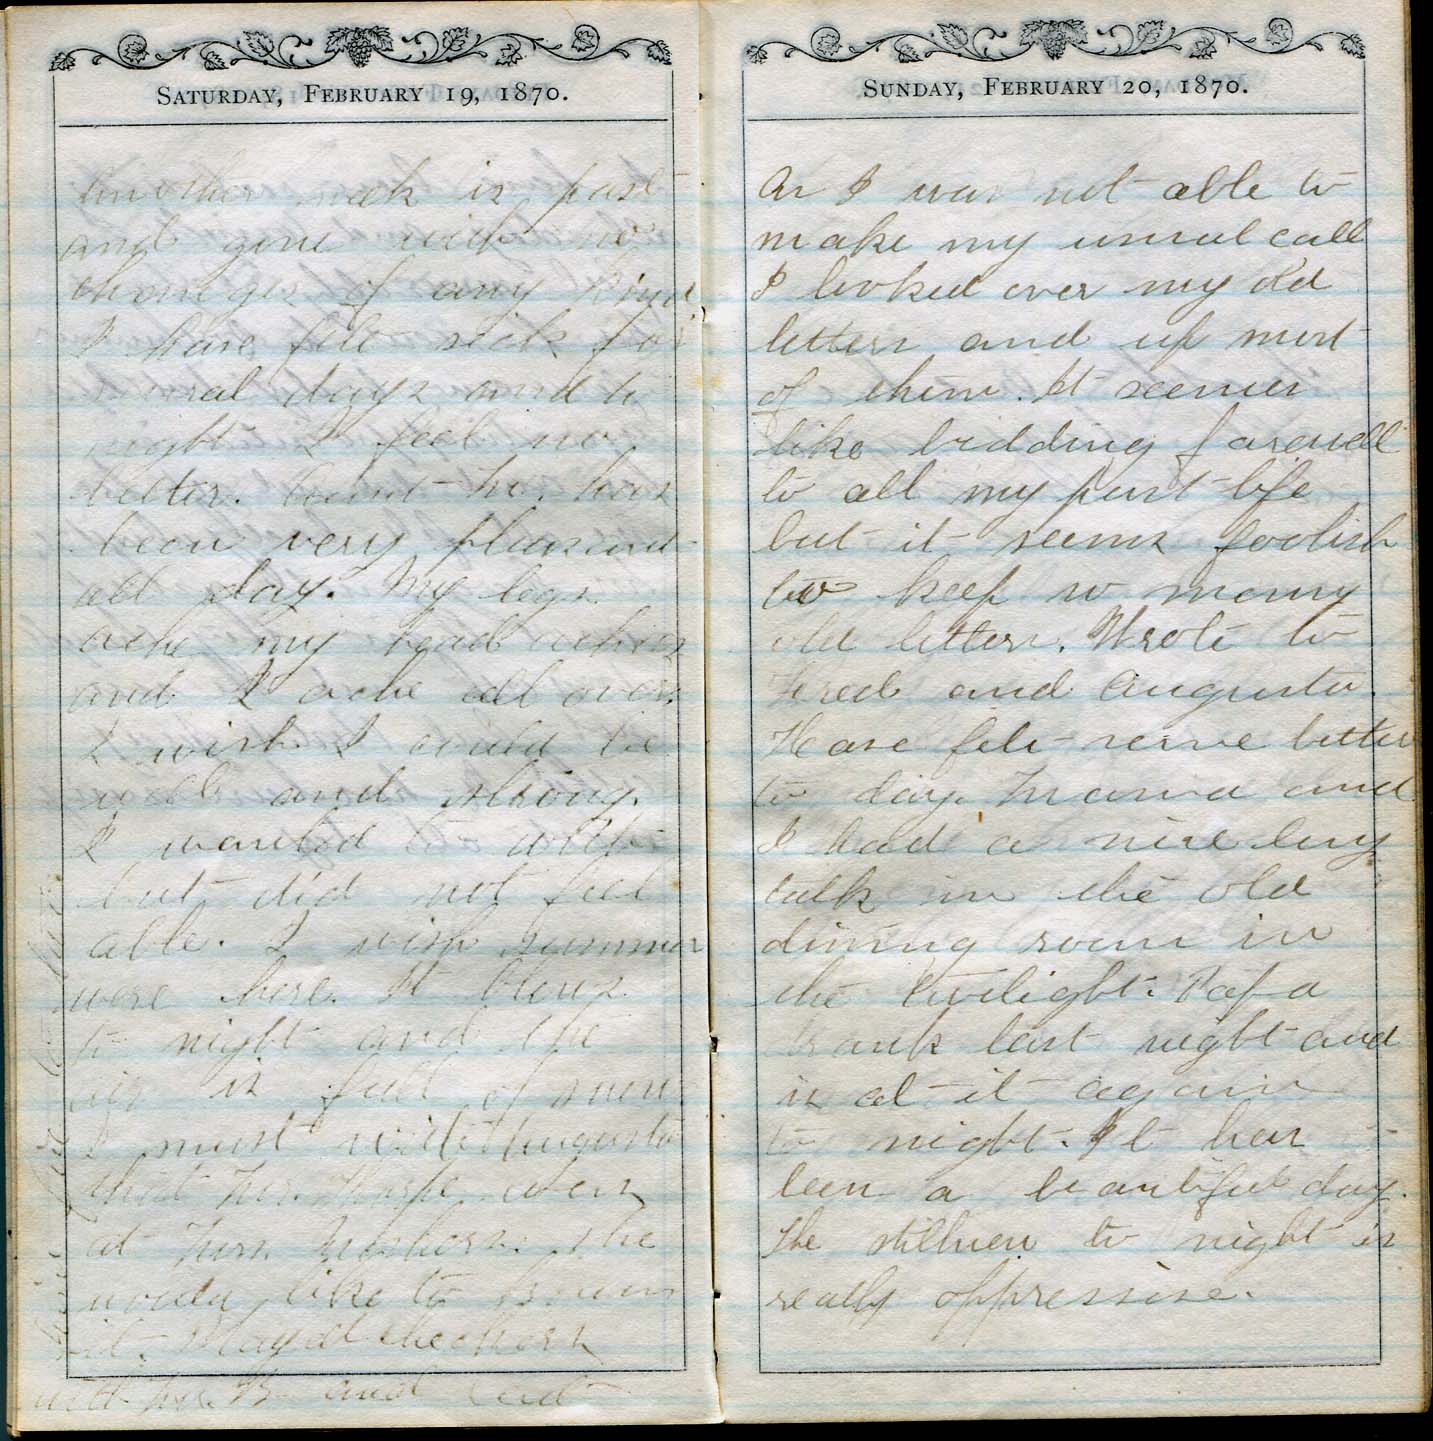 SATURDAY, FEBRUARY 19, 1870.
Another week is past
and gone with no
changes of any kind
I have felt sick for
several days and to
night I feel no
better. Aunt M. has
been very pleasant
all day. My legs
ache my head aches
and I ache all over.
I wish I could be
well and strong.
I wanted to write
but did not feel
able. I wish summer
were here. It blows
to night and the
air is full of snow.
I must write Augusta
that Mr. Thorpe was
at Mrs. she
would like to know
it. Played checkers
with Mr. B and
SUNDAY, FEBRUARY 20, 1870.
As I was not able to
make my usual call
I looked over my old
letters and up most
of them. It seemes
like bidding farewell
to all my past life
but it seems foolish
to keep so many
old letters. Wrote to
Fred and Augusta.
Have felt some better
to day. Mama and
I had a nice long
talk in the old
dining room in
the twilight. Papa
drank last night and
is at it again
to night. It has
been a beautiful day.
The stillness to night is
really oppressive.